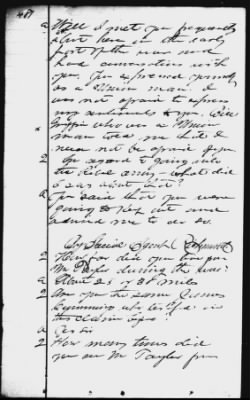 401
a Well I met you frequently
about here in the early
part of the war and
had conversations with
you. You expressed openly
as a Union man. I
was not afraid to express
my sentiments to you.
who was a Union
man told me that I
need not be afraid of you
2 In regard to going into
the Rebel army what did
I say about that?
a You said that you were
going to keep out and
advised me to do so.
By Special Agent
2 How far did you live from
Mr Taylor during the war?
a About 25 or 28 miles
2 Are you the same
who testified in
this claim
a Yes sir
2 How many times did
you see Mr Taylor from